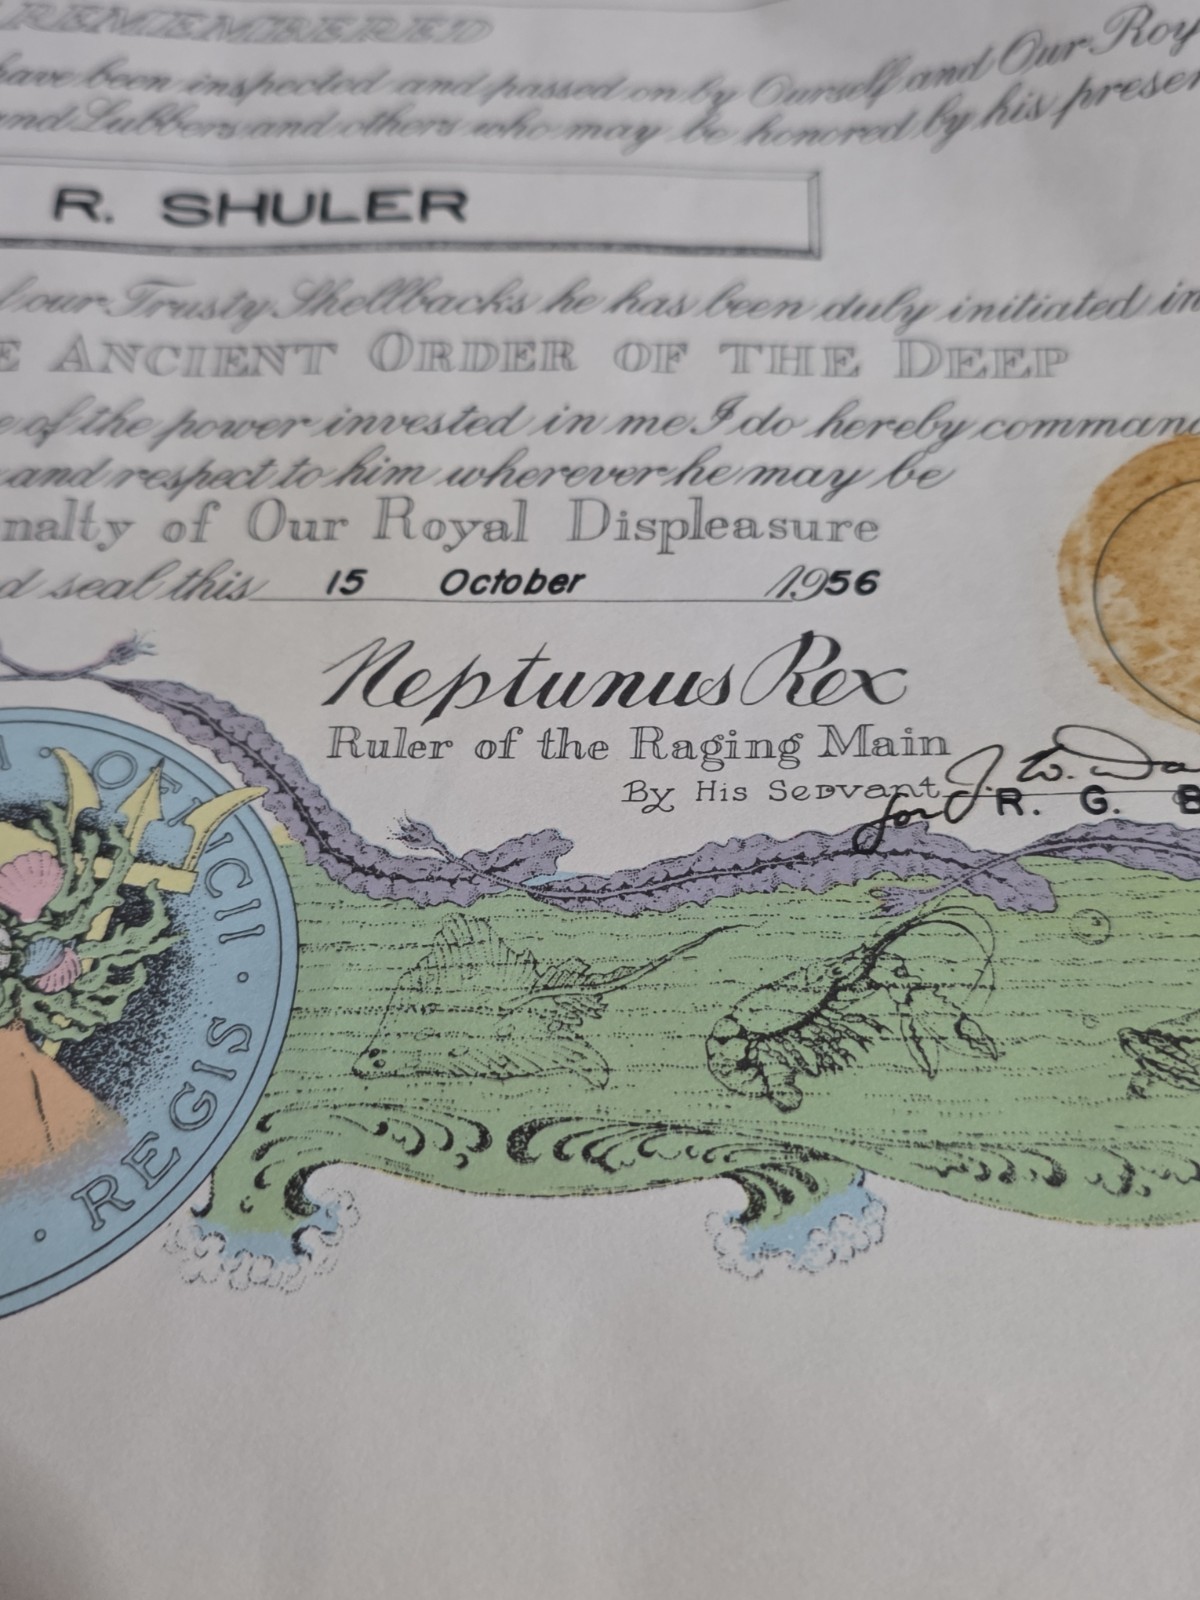 REMEMBERED
have been inspected and passed on by Ourself and Our Roy
and Lubbers and others who may be honored by his presen
R. SHULER
our Trusty Shellbacks he has been duly initiated in
E ANCIENT ORDER OF THE DEEP
of the power invested in me I do hereby comman
and respect to him wherever he may be
nalty of Our Royal Displeasure
d seal this 15 October 1956
Neptunus Rex
Ruler of the Raging Main
By His Servant J. W. Da
for R. G. B
OFFICII · REGIS ·